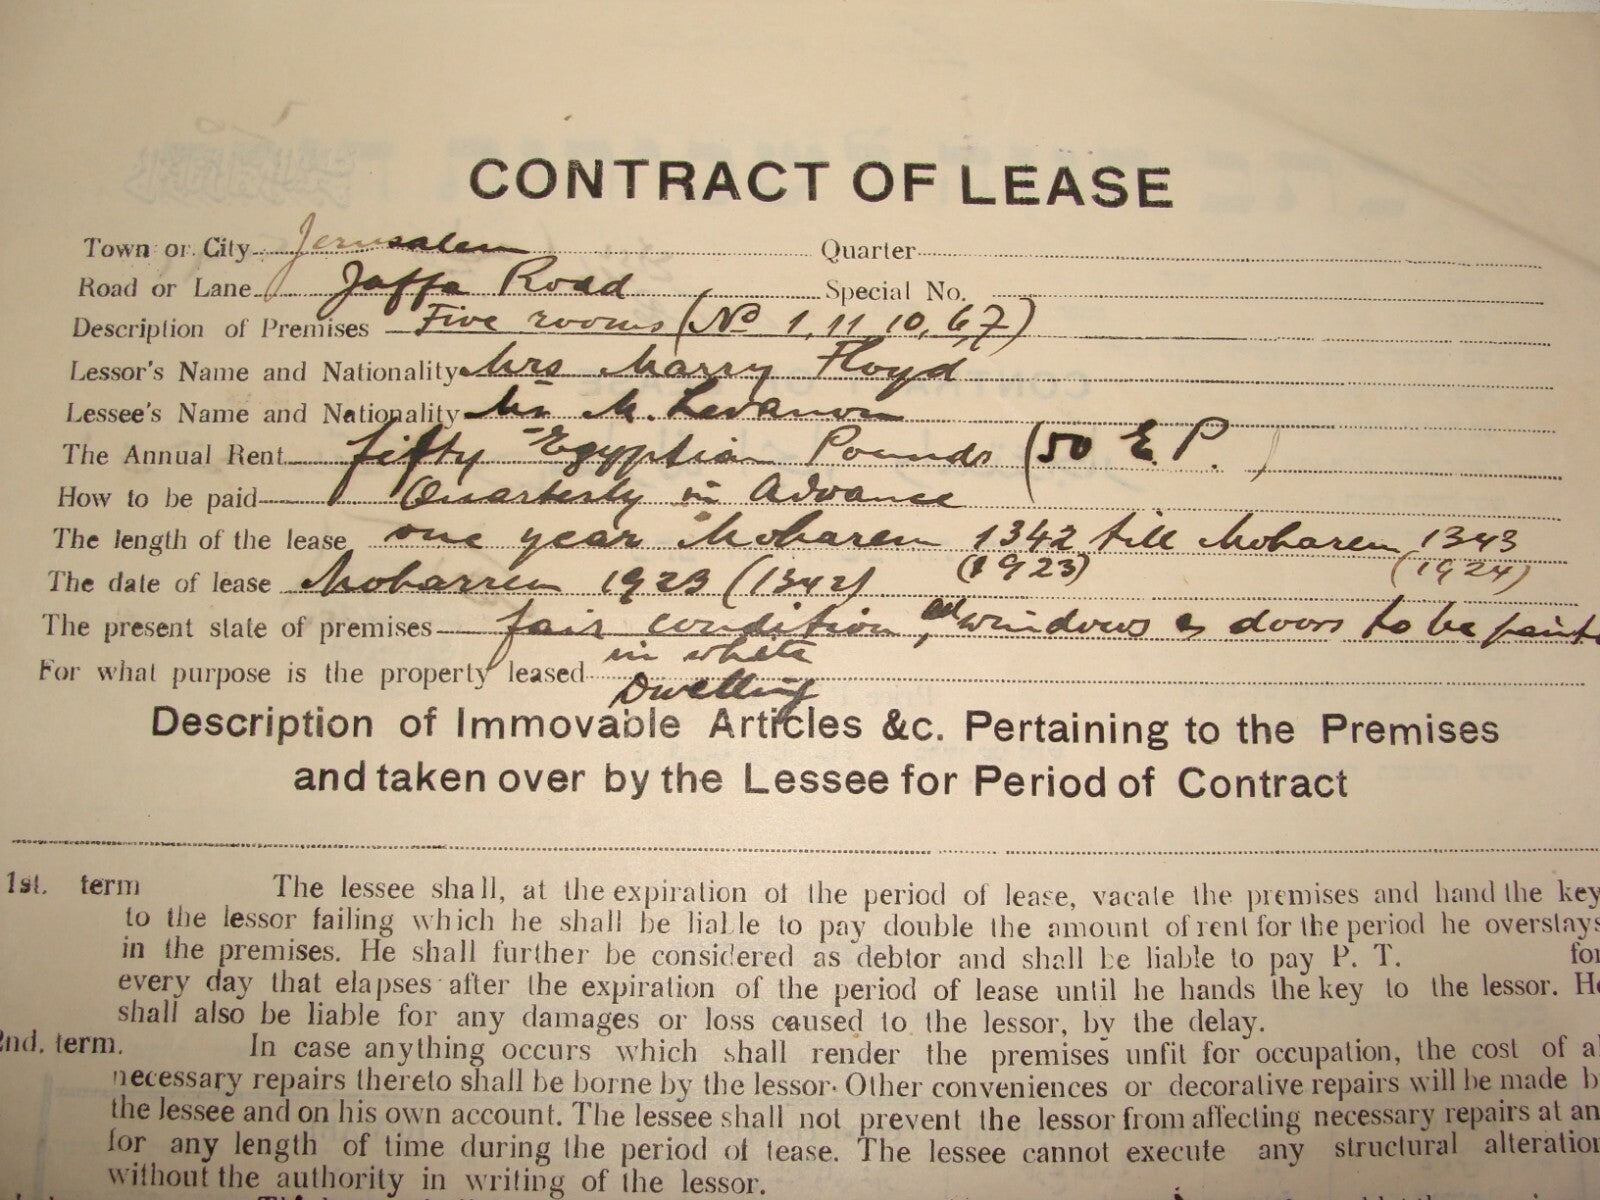 CONTRACT OF LEASE
Town or City Jerusalem Quarter
Road or Lane Jaffa Road Special No.
Description of Premises Five rooms (No 1, 11, 10, 6, 7)
Lessor's Name and Nationality Mrs Marry Floyd
Lessee's Name and Nationality Mr M. Levanon
The Annual Rent fifty Egyptian Pounds (50 E. P. )
How to be paid Quarterly in Advance
The length of the lease one year Moharem 1342 till Moharem 1343
(1923) (1924)
The date of lease Moharrem 1923 (1342)
The present state of premises fair condition, windows & doors to be paint
in white
For what purpose is the property leased
Dwelling
Description of Immovable Articles &c. Pertaining to the Premises
and taken over by the Lessee for Period of Contract
1st. term The lessee shall, at the expiration of the period of lease, vacate the premises and hand the key
to the lessor failing which he shall be liable to pay double the amount of rent for the period he overstays
in the premises. He shall further be considered as debtor and shall be liable to pay P. T. for
every day that elapses after the expiration of the period of lease until he hands the key to the lessor. He
shall also be liable for any damages or loss caused to the lessor, by the delay.
2nd. term. In case anything occurs which shall render the premises unfit for occupation, the cost of al
necessary repairs thereto shall be borne by the lessor. Other conveniences or decorative repairs will be made b
the lessee and on his own account. The lessee shall not prevent the lessor from affecting necessary repairs at an
for any length of time during the period of lease. The lessee cannot execute any structural alteration
without the authority in writing of the lessor.